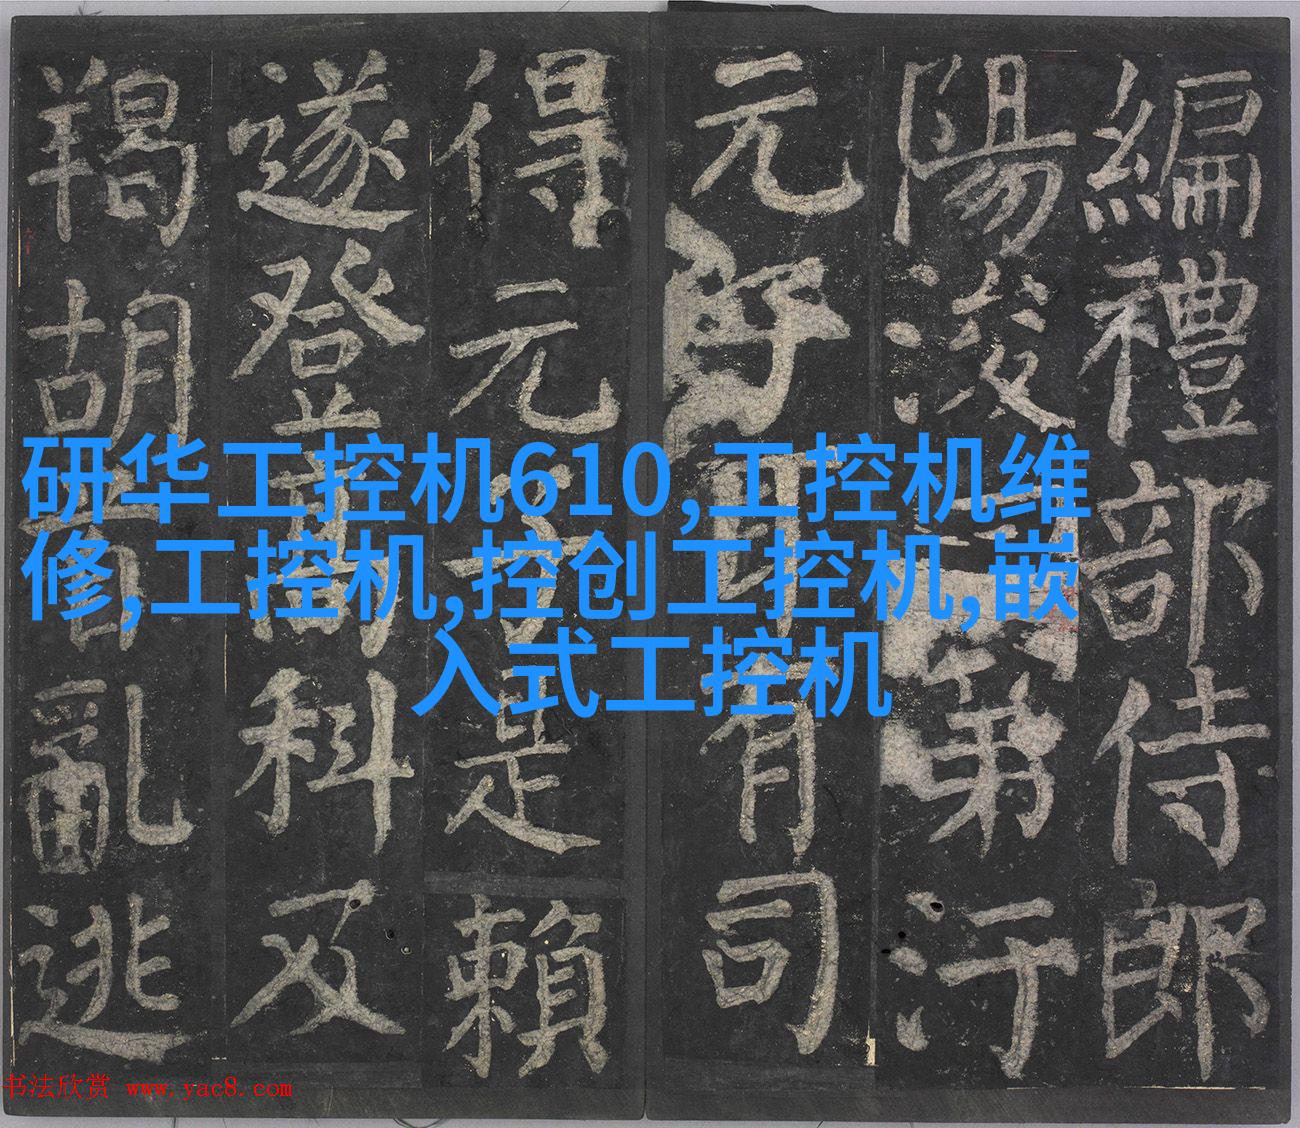 編禮部侍郎
陽浚曰一第汙
元子耳有司
得元子是賴
遂登高科及
羯胡首亂逃
研华工控机610,工控机维
修,工控机,控创工控机,嵌
入式工控机
书法欣赏 www.yac8.com